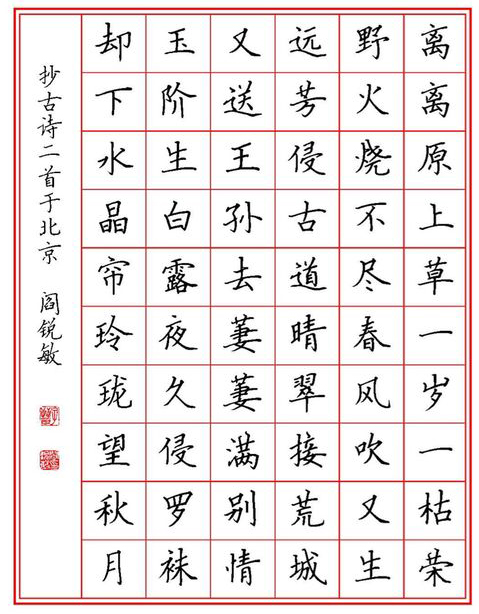 离离原上草一岁一枯荣
野火烧不尽春风吹又生
远芳侵古道晴翠接荒城
又送王孙去萋萋满别情
玉阶生白露夜久侵罗袜
却下水晶帘玲珑望秋月
抄古诗二首于北京 阎锐敏